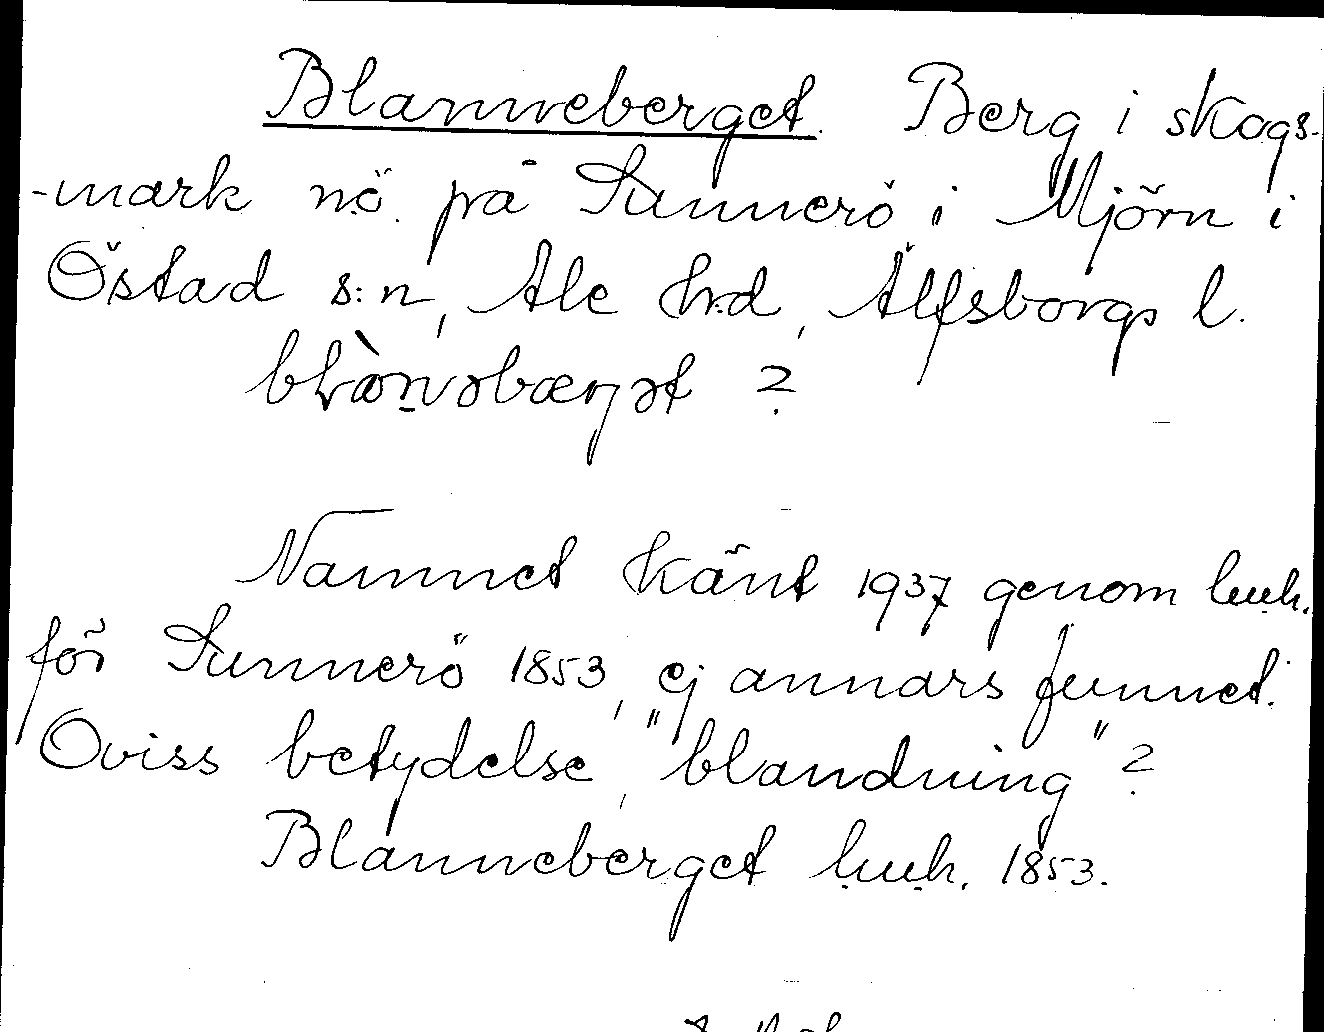 Blanneberget. Berg i skogs-
-mark nö. på Sunnerö i Mjörn i
Östad s:n, Ale hd, Älfsborgs l.
Namnet känt 1937 genom
för Sunnerö 1853, ej annars funnet.
Oviss betydelse, "blandning"?
Blanneberget 1853.